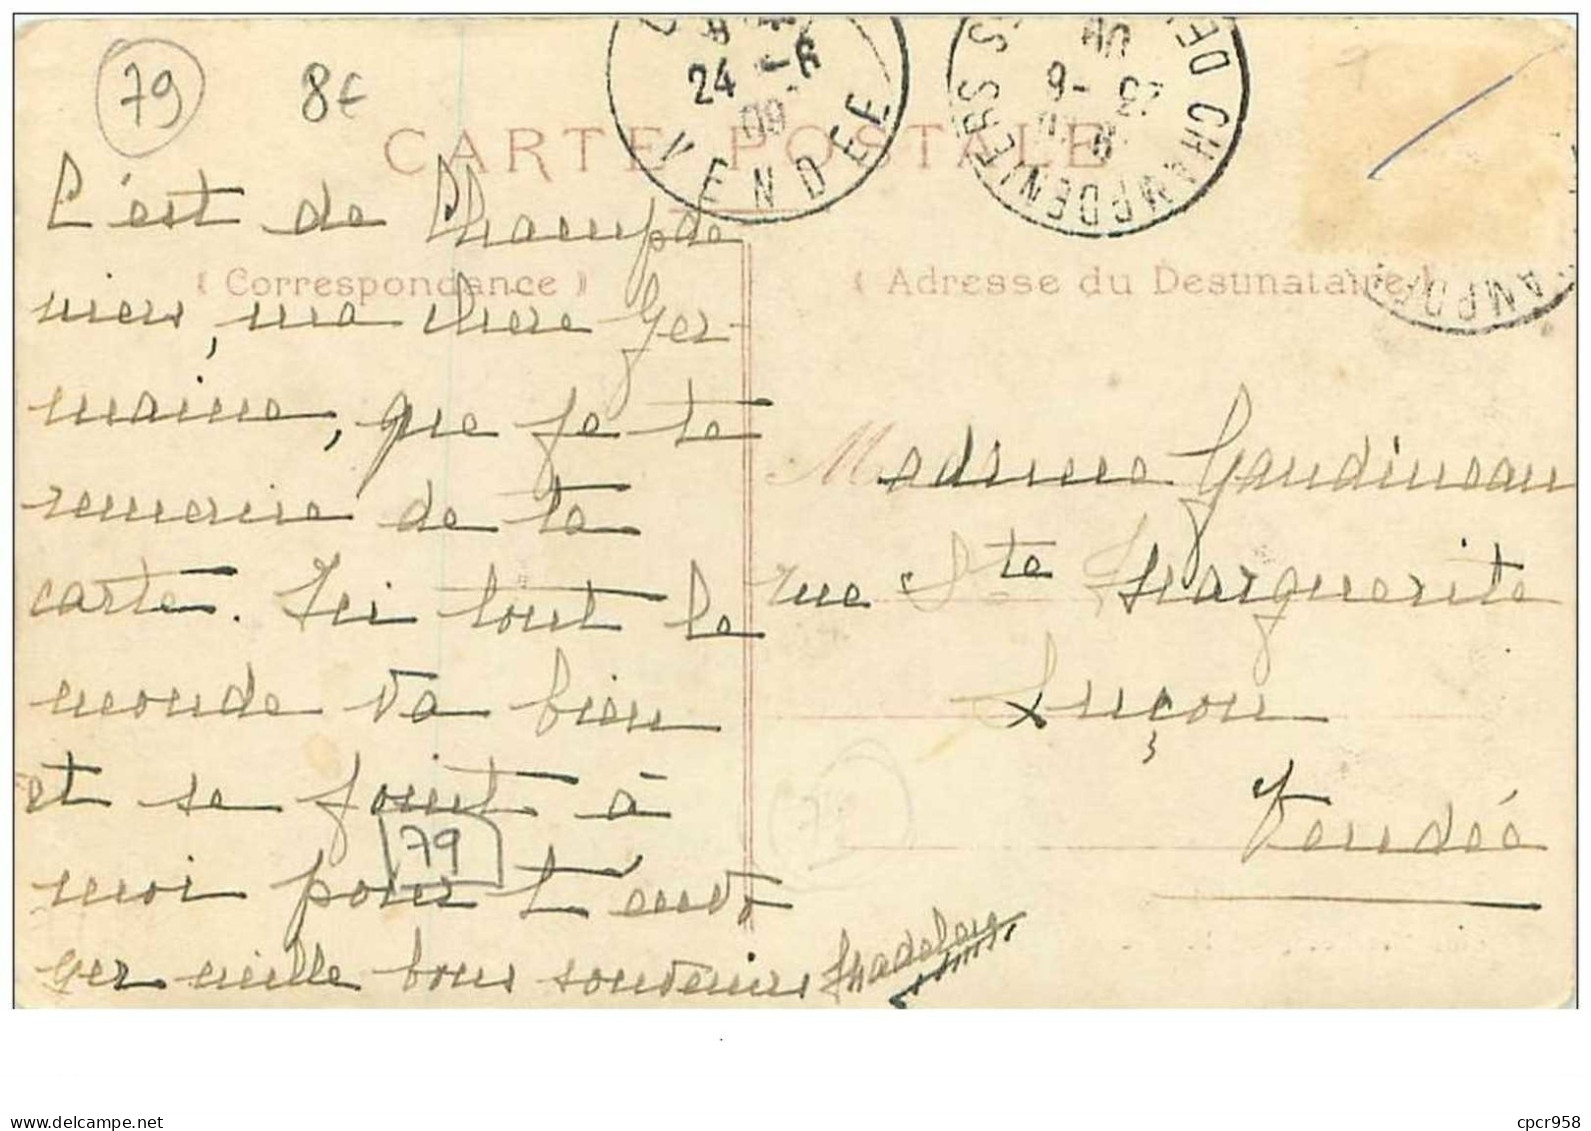 79
8€
24 -6
09
VENDEE
CHAMPDENIERS
23 -6
CARTE POSTALE
( Correspondance )
( Adresse du Destinataire )
C'est de Champde
niers, ma chère Ger-
maine, que je te
remercie de ta
carte. Ici tout le
monde va bien
et se joint à
79
moi pour t'envo
yer mille bons souvenirs
Madame Gaudineau
rue Ste Marguerite
Luçon
Vendée
AMPD
www.delcampe.net
cpcr958